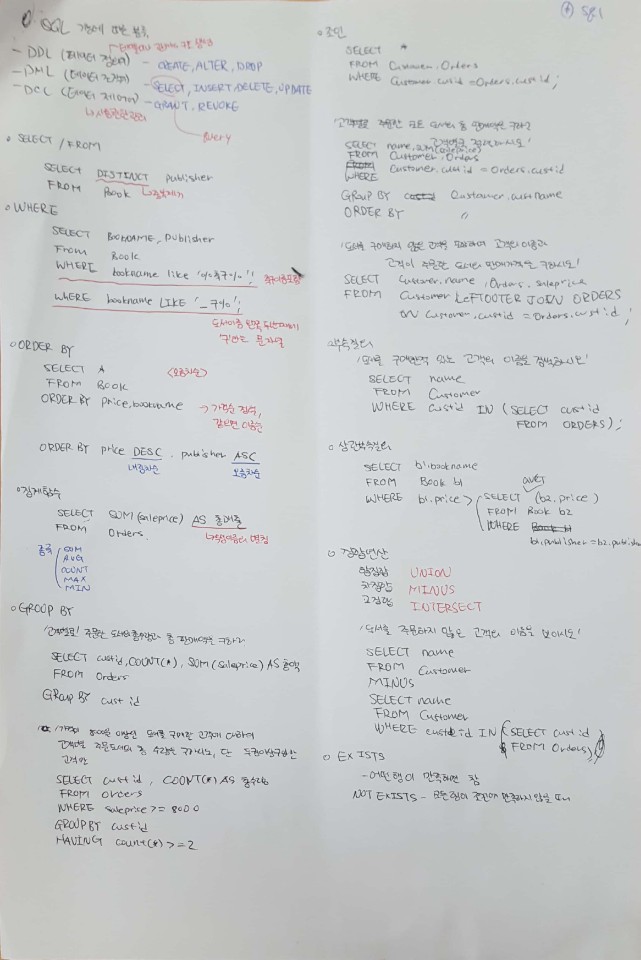 0. SQL 기능에 따른 분류
- DDL (데이터 정의어) - CREATE, ALTER, DROP
- DML (데이터 조작어) - SELECT, INSERT, DELETE, UPDATE
- DCL (데이터 제어어) - GRANT, REVOKE
↳ 사용권한관리
query
○ SELECT / FROM
SELECT DISTINCT publisher
FROM Book ↳ 중복제거
○ WHERE
SELECT BOOKNAME, publisher
From Book
WHERE bookname like '%축구%'; 축구이름포함
WHERE bookname LIKE '_구%';
도서이름 왼쪽 두번째에
구라는 문자열
○ ORDER BY
SELECT * <오름차순>
FROM Book
ORDER BY price, bookname → 가격순 검색,
같으면 이름순
ORDER BY price DESC, publisher ASC
내림차순 오름차순
○ 집계함수
SELECT SUM(saleprice) AS 총매출
FROM Orders.
종류 SUM
AVG
COUNT
MAX
MIN
○ GROUP BY
'고객별로 주문한 도서의 총수량과 총 판매액을 구하라
SELECT custid, COUNT(*), SUM(saleprice) AS 총액
FROM Orders
GROUP BY custid
고객별 주문도서의 총 수량을 구하시오, 단 두권이상구매한
고객만
SELECT custid, COUNT(*) AS 총수량
FROM orders
WHERE saleprice >= 8000
GROUP BY custid
HAVING count(*) >= 2
④ SQL
○ 조인
SELECT *
FROM Customer, Orders
WHERE Customer.custid = Orders.custid;
'고객별로 주문한 모든 도서의 총 판매액을 구하라
고객별로 정렬하시오'
SELECT name, SUM(saleprice)
FROM Customer, Orders
WHERE Customer.custid = Orders.custid
GROUP BY Customer.name
ORDER BY 〃
'도서를 구매하지 않은 고객을 포함하여 고객의 이름과
고객이 주문한 도서의 판매가격을 구하시오'
SELECT Customer.name, Orders.saleprice
FROM Customer LEFT OUTER JOIN ORDERS
ON Customer.custid = Orders.custid;
○ 부속질의
'도서를 구매한적 있는 고객의 이름을 검색하시오'
SELECT name
FROM Customer
WHERE custid IN (SELECT custid
FROM ORDERS);
○ 상관부속질의
SELECT b1.bookname
FROM Book b1
WHERE b1.price > (SELECT avg(b2.price)
FROM Book b2
WHERE
b1.publisher = b2.publisher
○ 집합연산
합집합 UNION
차집합 MINUS
교집합 INTERSECT
'도서를 주문하지 않은 고객의 이름을 보이시오'
SELECT name
FROM Customer
MINUS
SELECT name
FROM Customer
WHERE custid IN (SELECT custid
FROM Orders);
○ EXISTS
- 어떤행이 만족하면 참
NOT EXISTS - 모든행이 조건에 만족하지않을 때